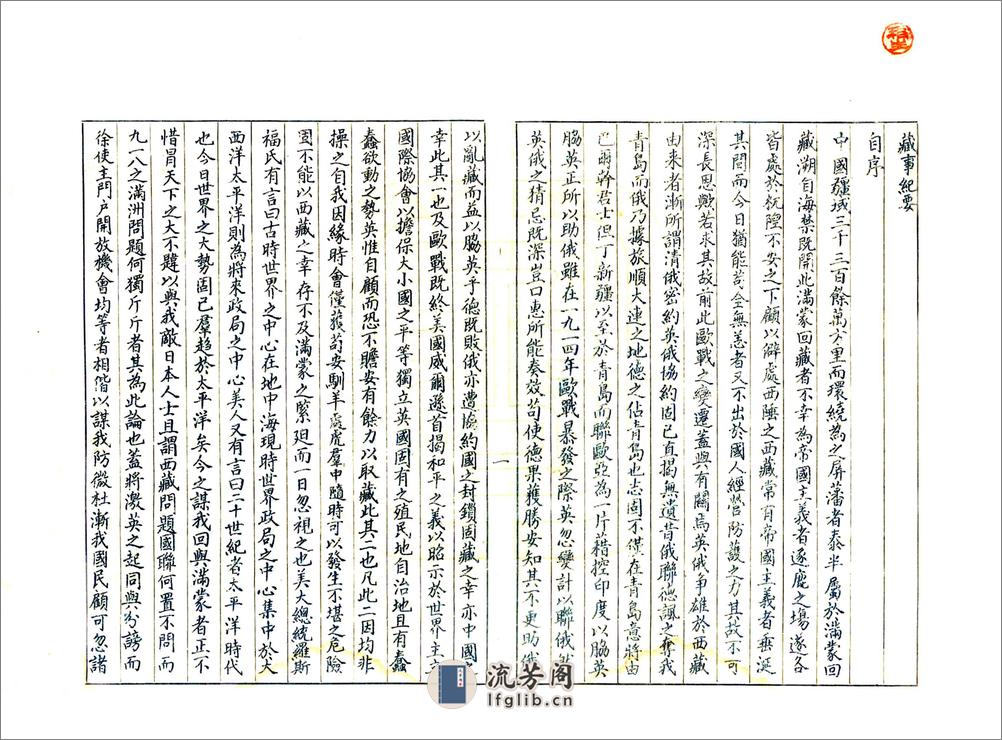 藏事紀要
自序
中國疆域三千三百餘萬方里而環繞為之屏藩者泰半屬於滿蒙回
藏溯自海禁既開此滿蒙回藏者不幸為帝國主義者逐鹿之場遂各
皆處於杌隉不安之下顧以僻處西陲之西藏常有帝國主義者垂涎
其間而今日猶能苟全無恙者又不出於國人經營防護之力其故不可
深長思歟若求其故前此歐戰之變遷蓋與有關焉英俄爭雄於西藏
由來者漸所謂清俄密約英俄協約固已直揭無遺昔俄聯德諷之奪我
青島而俄乃據旅順大連之地德之佔青島也志固不僅在青島意將由
巴爾幹君士但丁新疆以至於青島而聯歐亞為一片藉控印度以脇英
脇英正所以助俄雖在一九一四年歐戰暴發之際英忽變計以聯俄
英俄之猜忌既深豈口惠所能奏效苟使德果獲勝安知其不更助俄
以亂藏而益以脇英乎德既敗俄亦遭協約國之封鎖固藏之幸亦中國之
幸此其一也及歐戰既終美國威爾遜首揭和平之義以昭示於世界主
國際協會以擔保大小國之平等獨立英國固有之殖民地自治地且有蠢
蠢欲動之勢英惟自顧而恐不贍安有餘力以取藏此其二也凡此二因均非
操之自我因緣時會僅獲苟安馴羊處虎羣中隨時可以發生不堪之危險
固不能以西藏之幸存不及滿蒙之緊廹而一日忽視之也美大總統羅斯
福氏有言曰古時世界之中心在地中海現時世界政局之中心集中於大
西洋太平洋則為將來政局之中心美人又有言曰二十世紀者太平洋時代
也今日世界之大勢固已羣趨於太平洋矣今之謀我回與滿蒙者正不
惜冒天下之大不韙以與我敵日本人士且謂西藏問題國聯何置不問而
九一八之滿洲問題何獨斤斤者其為此論也蓋將激英之起同與分謗而
徐使主門戶開放機會均等者相偕以謀我防微杜漸我國民顧可忽諸
一
流芳阁
lfglib.cn